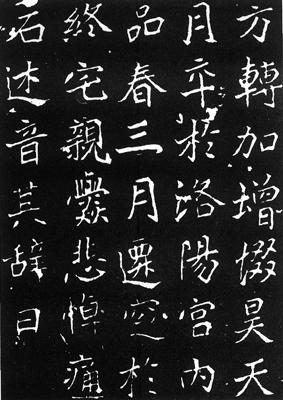 方轉加增惙昊天
月卒於洛陽宮内
品春三月遷窆於
終宅親爨悲悼痛
石述音其辭曰